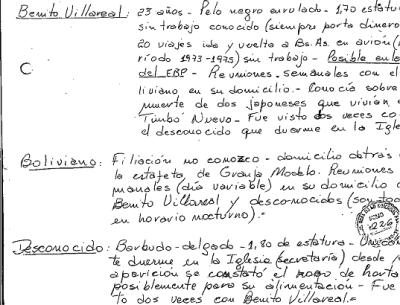 Benito Villareal: 23 años - Pelo negro enrulado - 1,70 estatu
sin trabajo conocido (siempre porta dinero
20 viajes ida y vuelta a Bs.As. en avión (
ríodo 1973-1975) sin trabajo - Posible enla
del ERP - Reuniones semanales con el
liviano en su domicilio - Conocía sobre
muerte de dos japoneses que vivían e
Timbó Nuevo - Fue visto dos veces co
el desconocido que duerme en la Igle
C
Boliviano: Filiación no conozco - domicilio detrás
la estafeta, de Granja Modelo. Reuniones
manales (día variable) en su domicilio c
Benito Villareal y desconocidos (son
en horario nocturno).-
Desconocido: Barbudo - delgado - 1,80 de estatura -
te duerme en la Iglesia (secretario) desde
aparición se constató el robo de horta
posiblemente para su alimentación - Fue
to dos veces con Benito Villareal.-